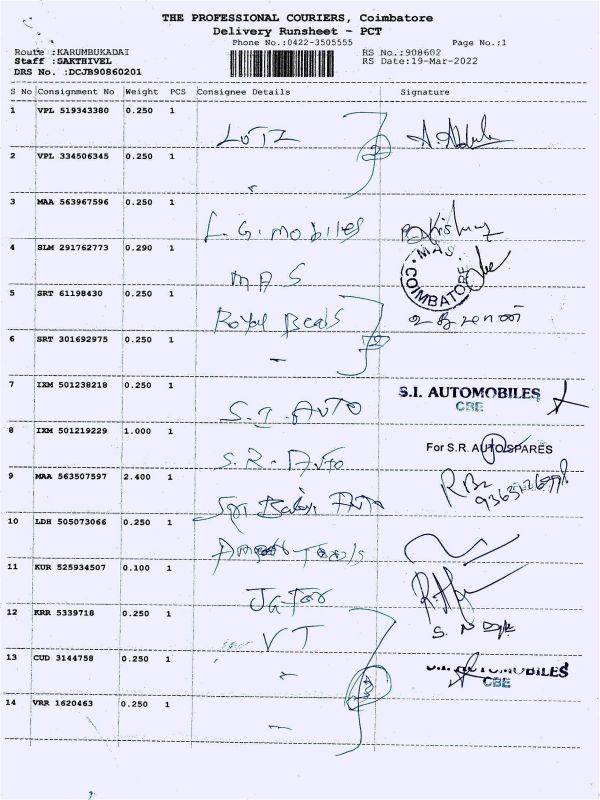 THE PROFESSIONAL COURIERS, Coimbatore
Delivery Runsheet - PCT
Phone No.:0422-3505555 Page No.:1
Route :KARUMBUKADAI RS No.:908602
Staff :SAKTHIVEL RS Date:19-Mar-2022
DRS No. :DCJB90860201
S No Consignment No Weight PCS Consignee Details Signature
1 VPL 519343380 0.250 1
LOTZ
2 VPL 334506345 0.250 1
3 MAA 563967596 0.250 1
L.G. mobiles
4 SLM 291762773 0.290 1
MAS
MAS COIMBATORE
5 SRT 61198430 0.250 1
Royal Beads
6 SRT 301692975 0.250 1
7 IXM 501238218 0.250 1
S.I. AUTOMOBILES
CBE
S.I. AUTO
8 IXM 501219229 1.000 1
For S.R. AUTO SPARES
S.R. Auto
9 MAA 563507597 2.400 1
10 LDH 505073066 0.250 1
11 KUR 525934507 0.100 1
12 KRR 5339718 0.250 1
VT
13 CUD 3144758 0.250 1
AUTOMOBILES
CBE
14 VRR 1620463 0.250 1